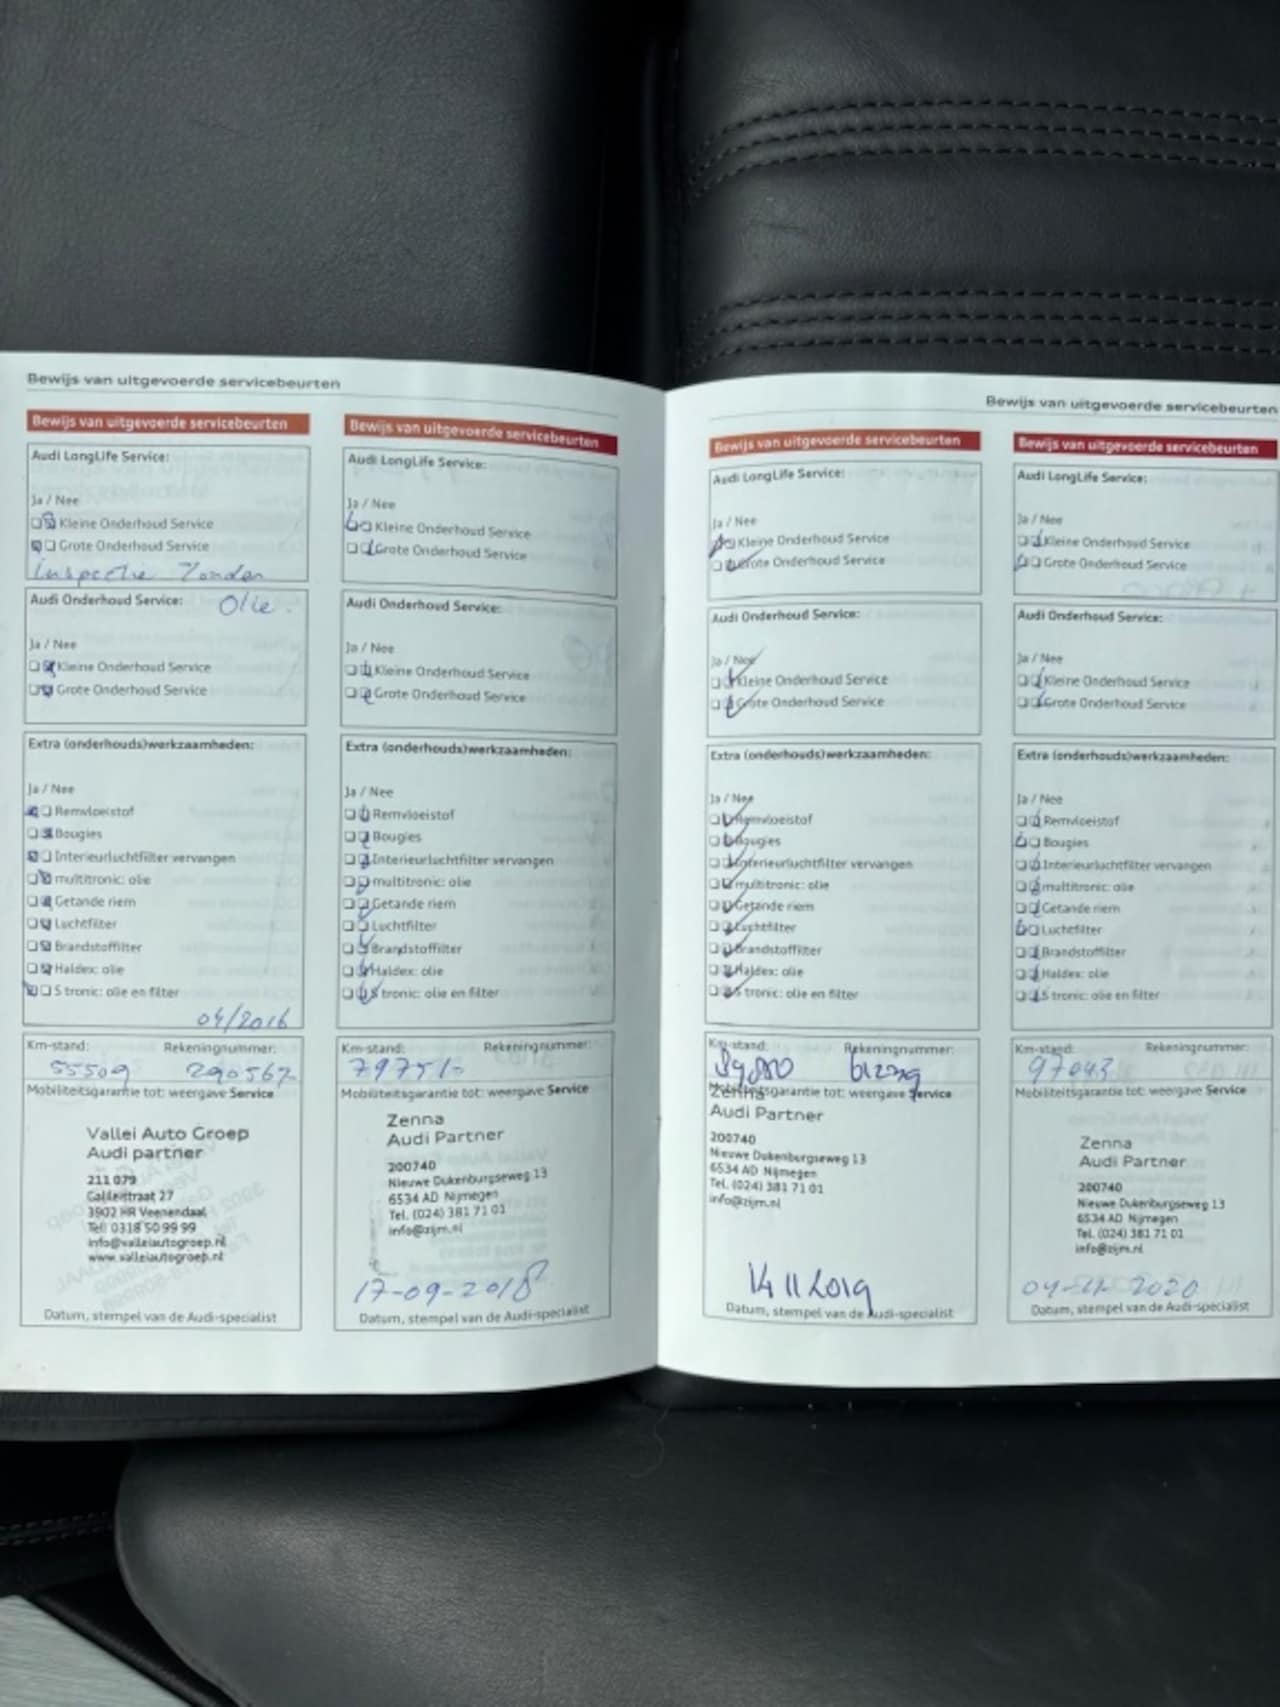 Bewijs van uitgevoerde servicebeurten
Bewijs van uitgevoerde servicebeurten
Audi LongLife Service:
Ja / Nee
Kleine Onderhoud Service
Grote Onderhoud Service
Inspectie Zonder
Audi Onderhoud Service: Olie.
Ja / Nee
Kleine Onderhoud Service
Grote Onderhoud Service
Extra (onderhouds)werkzaamheden:
Ja / Nee
Remvloeistof
Bougies
Interieurluchtfilter vervangen
multitronic: olie
Getande riem
Luchtfilter
Brandstoffilter
Haldex: olie
S tronic: olie en filter
04/2016
Km-stand: Rekeningnummer:
55509 290567
Mobiliteitsgarantie tot: weergave Service
Vallei Auto Groep
Audi partner
211 079
Galileistraat 27
3902 HR Veenendaal
Tel: 0318 50 99 99
info@valleiautogroep.nl
www.valleiautogroep.nl
Datum, stempel van de Audi-specialist
Bewijs van uitgevoerde servicebeurten
Audi LongLife Service:
Ja / Nee
Kleine Onderhoud Service
Grote Onderhoud Service
Audi Onderhoud Service:
Ja / Nee
Kleine Onderhoud Service
Grote Onderhoud Service
Extra (onderhouds)werkzaamheden:
Ja / Nee
Remvloeistof
Bougies
Interieurluchtfilter vervangen
multitronic: olie
Getande riem
Luchtfilter
Brandstoffilter
Haldex: olie
S tronic: olie en filter
Km-stand: Rekeningnummer:
Mobiliteitsgarantie tot: weergave Service
Zenna
Audi Partner
200740
Nieuwe Dukenburgseweg 13
6534 AD Nijmegen
Tel. (024) 381 71 01
info@zijm.nl
17-09-2018
Datum, stempel van de Audi-specialist
Bewijs van uitgevoerde servicebeurten
Bewijs van uitgevoerde servicebeurten
Audi LongLife Service:
Ja / Nee
Kleine Onderhoud Service
Grote Onderhoud Service
Audi Onderhoud Service:
Ja / Nee
Kleine Onderhoud Service
Grote Onderhoud Service
Extra (onderhouds)werkzaamheden:
Ja / Nee
Remvloeistof
Bougies
Interieurluchtfilter vervangen
multitronic: olie
Getande riem
Luchtfilter
Brandstoffilter
Haldex: olie
S tronic: olie en filter
Km-stand: Rekeningnummer:
Mobiliteitsgarantie tot: weergave Service
Zenna
Audi Partner
200740
Nieuwe Dukenburgseweg 13
6534 AD Nijmegen
Tel. (024) 381 71 01
info@zijm.nl
14 11 2019
Datum, stempel van de Audi-specialist
Bewijs van uitgevoerde servicebeurten
Audi LongLife Service:
Ja / Nee
Kleine Onderhoud Service
Grote Onderhoud Service
Audi Onderhoud Service:
Ja / Nee
Kleine Onderhoud Service
Grote Onderhoud Service
Extra (onderhouds)werkzaamheden:
Ja / Nee
Remvloeistof
Bougies
Interieurluchtfilter vervangen
multitronic: olie
Getande riem
Luchtfilter
Brandstoffilter
Haldex: olie
S tronic: olie en filter
Km-stand: Rekeningnummer:
97043
Mobiliteitsgarantie tot: weergave Service
Zenna
Audi Partner
200740
Nieuwe Dukenburgseweg 13
6534 AD Nijmegen
Tel. (024) 381 71 01
info@zijm.nl
04-11-2020
Datum, stempel van de Audi-specialist